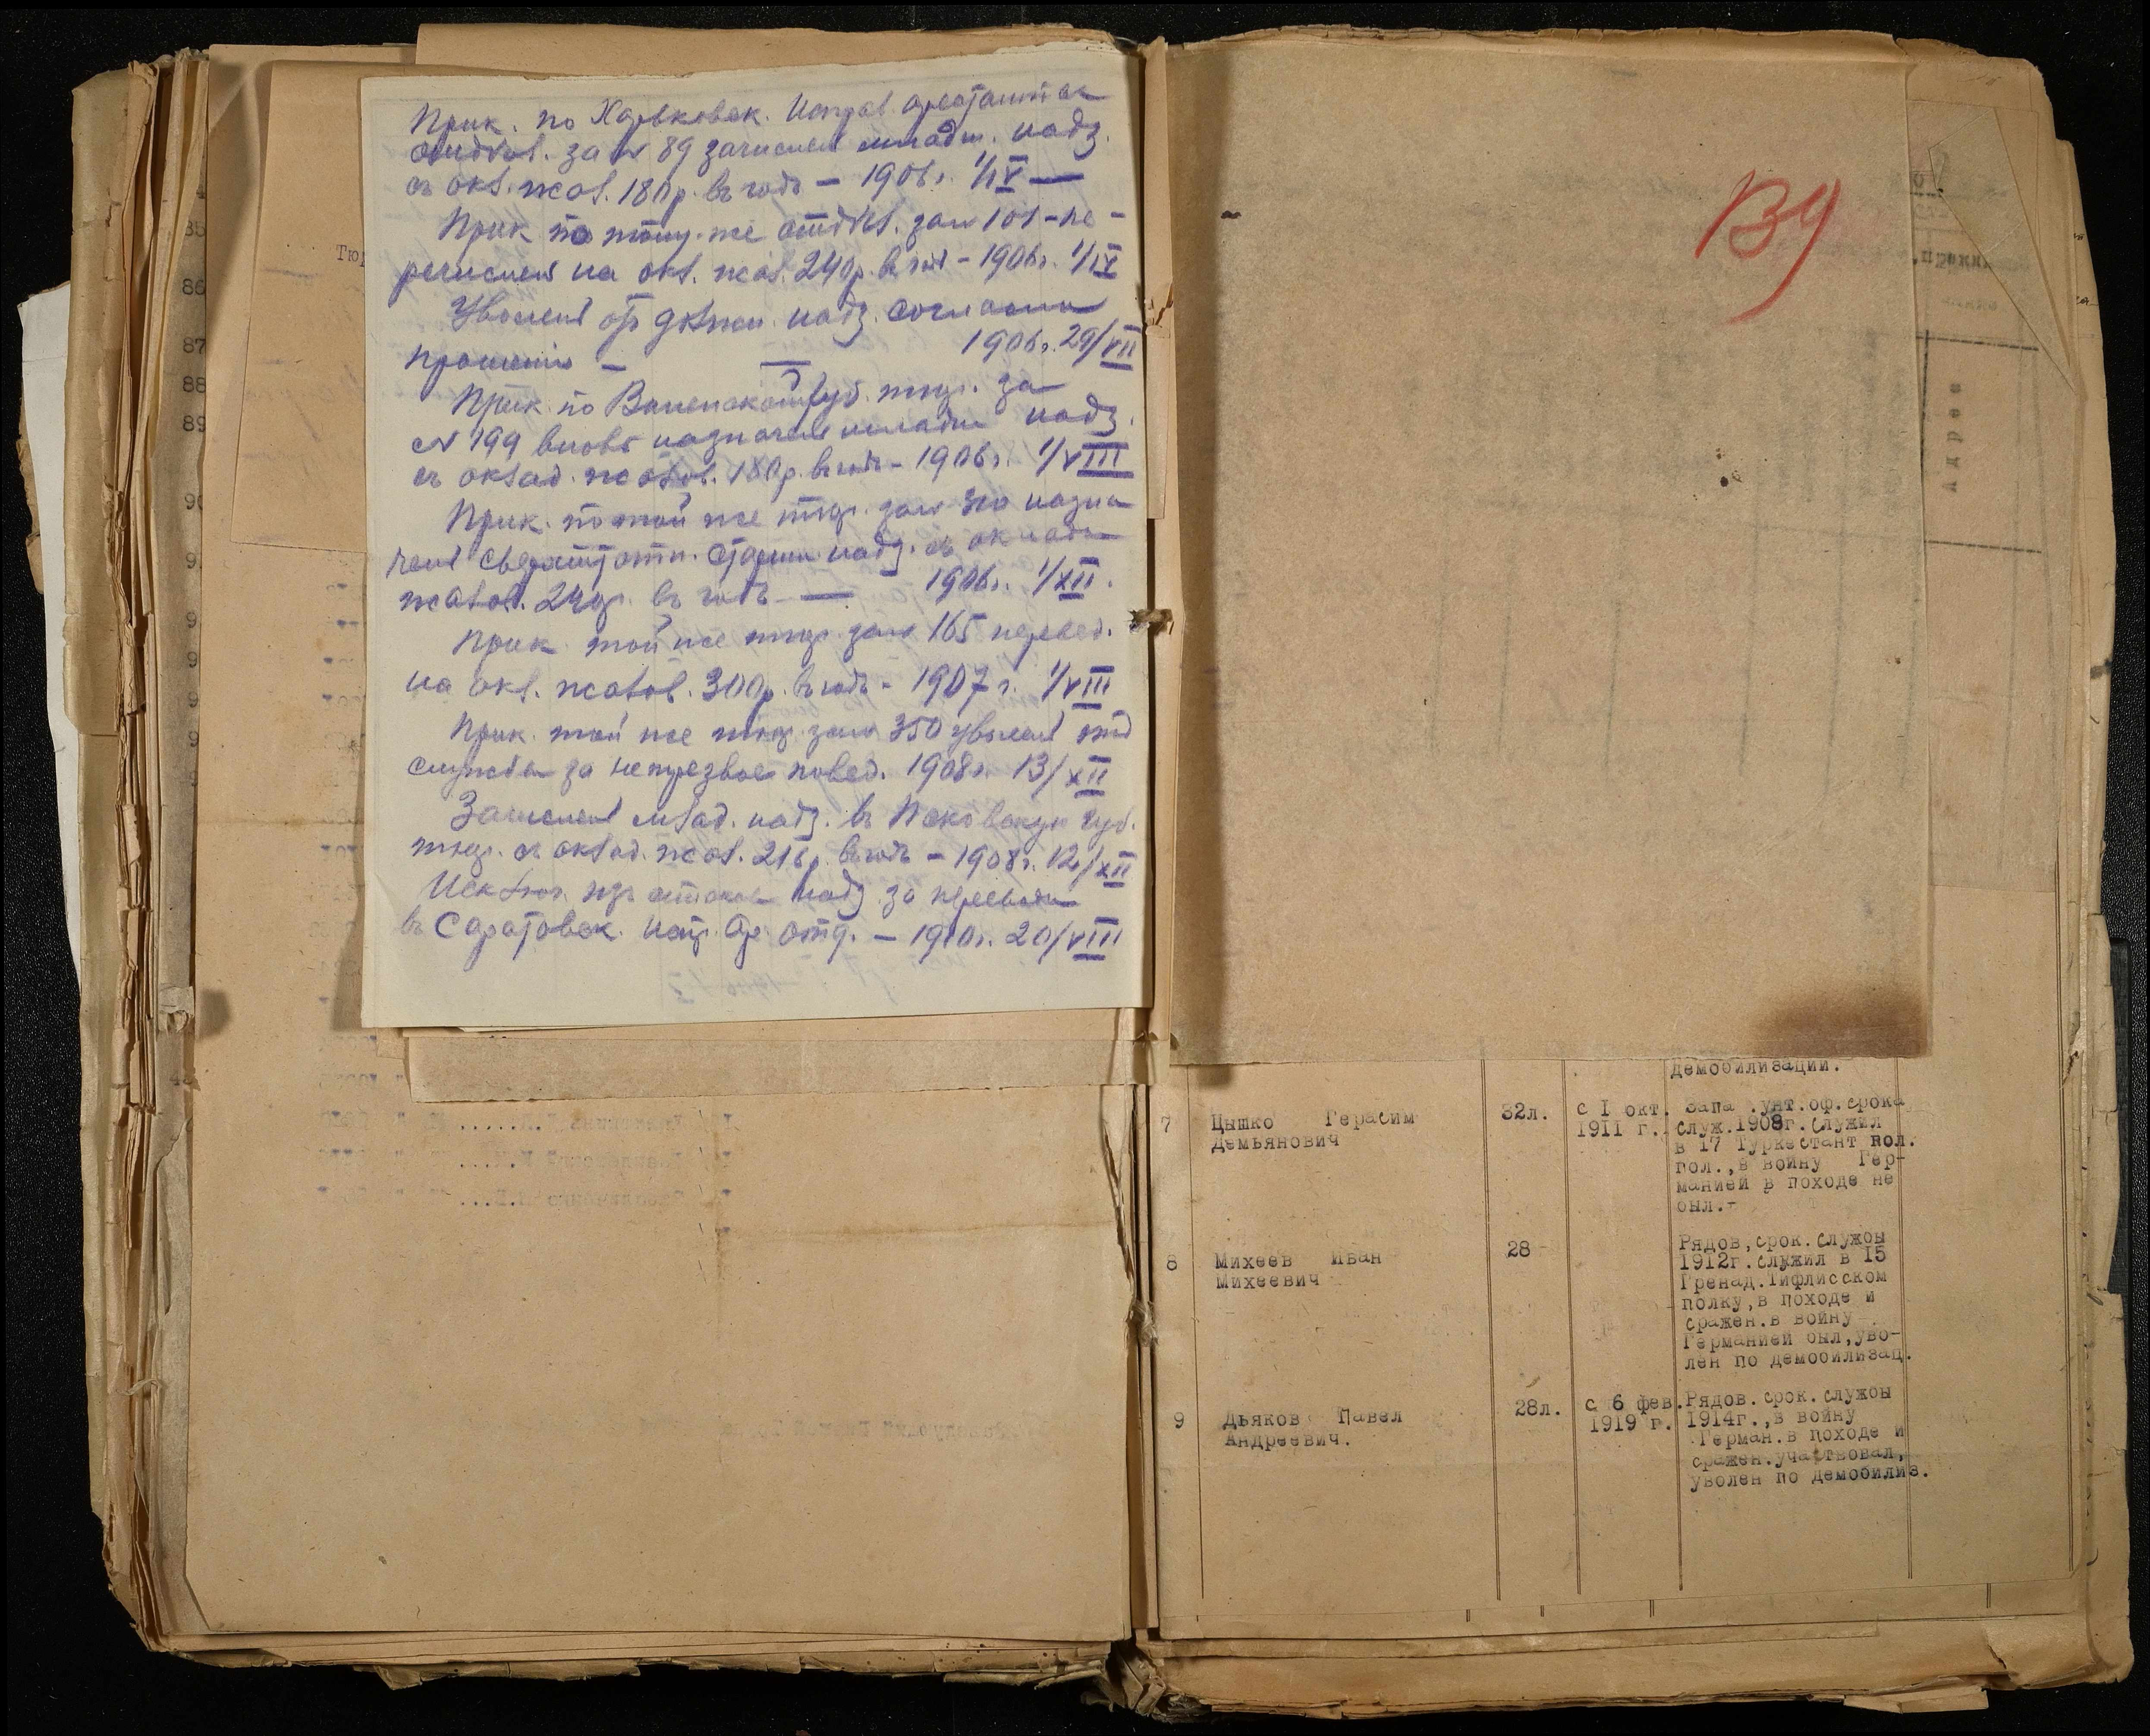 Прик. по Харьковск. Исправ. арестантск.
отдѣл. за № 89 зачислен младш. надз.
съ окл. жал. 180 р. въ годъ — 1906 г. 1/IV —
Прик по тому-же отдѣл. за № 101 - пе-
речислен на окл. жал. 240 р. въ год - 1906 г. 1/IX
Уволенъ отъ должн. надз. согласно
прошенія — 1906 г. 29/VII
Прик. по Виленской Губ. тюр. за
№ 199 вновь назначен младш надз.
съ оклад. жалов. 180 р. въ годъ - 1906 г. 1/VIII
Прик. по той же тюр. за № 310 назна
чен сверхштатн. старш. надз. съ окладом
жалов. 240 р. въ годъ — 1906 г. 1/XII.
Прик. той же тюр. за № 165 перевед.
на окл. жалов. 300 р. въ годъ - 1907 г. 1/VIII
Прик. той же тюр. за № 350 уволен от
службы за нетрезвое повед. 1908 г. 13/XII
Зачислен млад. надз. въ Псковскую Губ.
тюр. съ оклад. жал. 216 р. въ годъ - 1908 г. 12/XII
Исключ. изъ списков надз. за переводом
въ Саратовск. исп. Ар. отд. — 1910 г. 20/VIII
Тюр
86
87
88
89
В9
Адрес
демобилизации.
7 Цышко Герасим 32л. с I окт. Запа .унт.оф.срока
Демьянович 1911 г. служ.1908г.служил
в 17 Туркестант пол.
пол.,в войну Гер-
манией в походе не
был.-
8 Михеев Иван 28 Рядов,срок.службы
Михеевич 1912г.служил в I5
Гренад.Тифлисском
полку,в походе и
сражен.в войну
Германией был,уво-
лен по демобилизац.
9 Дьяков Павел 28л. с 6 фев. Рядов.срок.службы
Андреевич. 1919 г. 1914г.,в войну
Герман.в походе и
сражен.участвовал,
уволен по демобилиз.